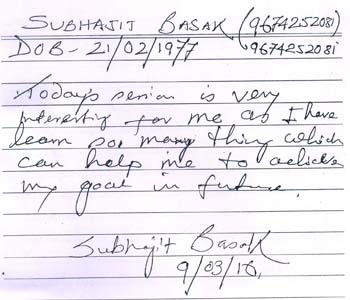 SUBHAJIT BASAK (9674252081)
DOB - 21/02/1977 9674252081
Todays session is very
interesting for me as I have
learn so many thing which
can help me to achieve
my goal in future.
Subhajit Basak
9/03/16.